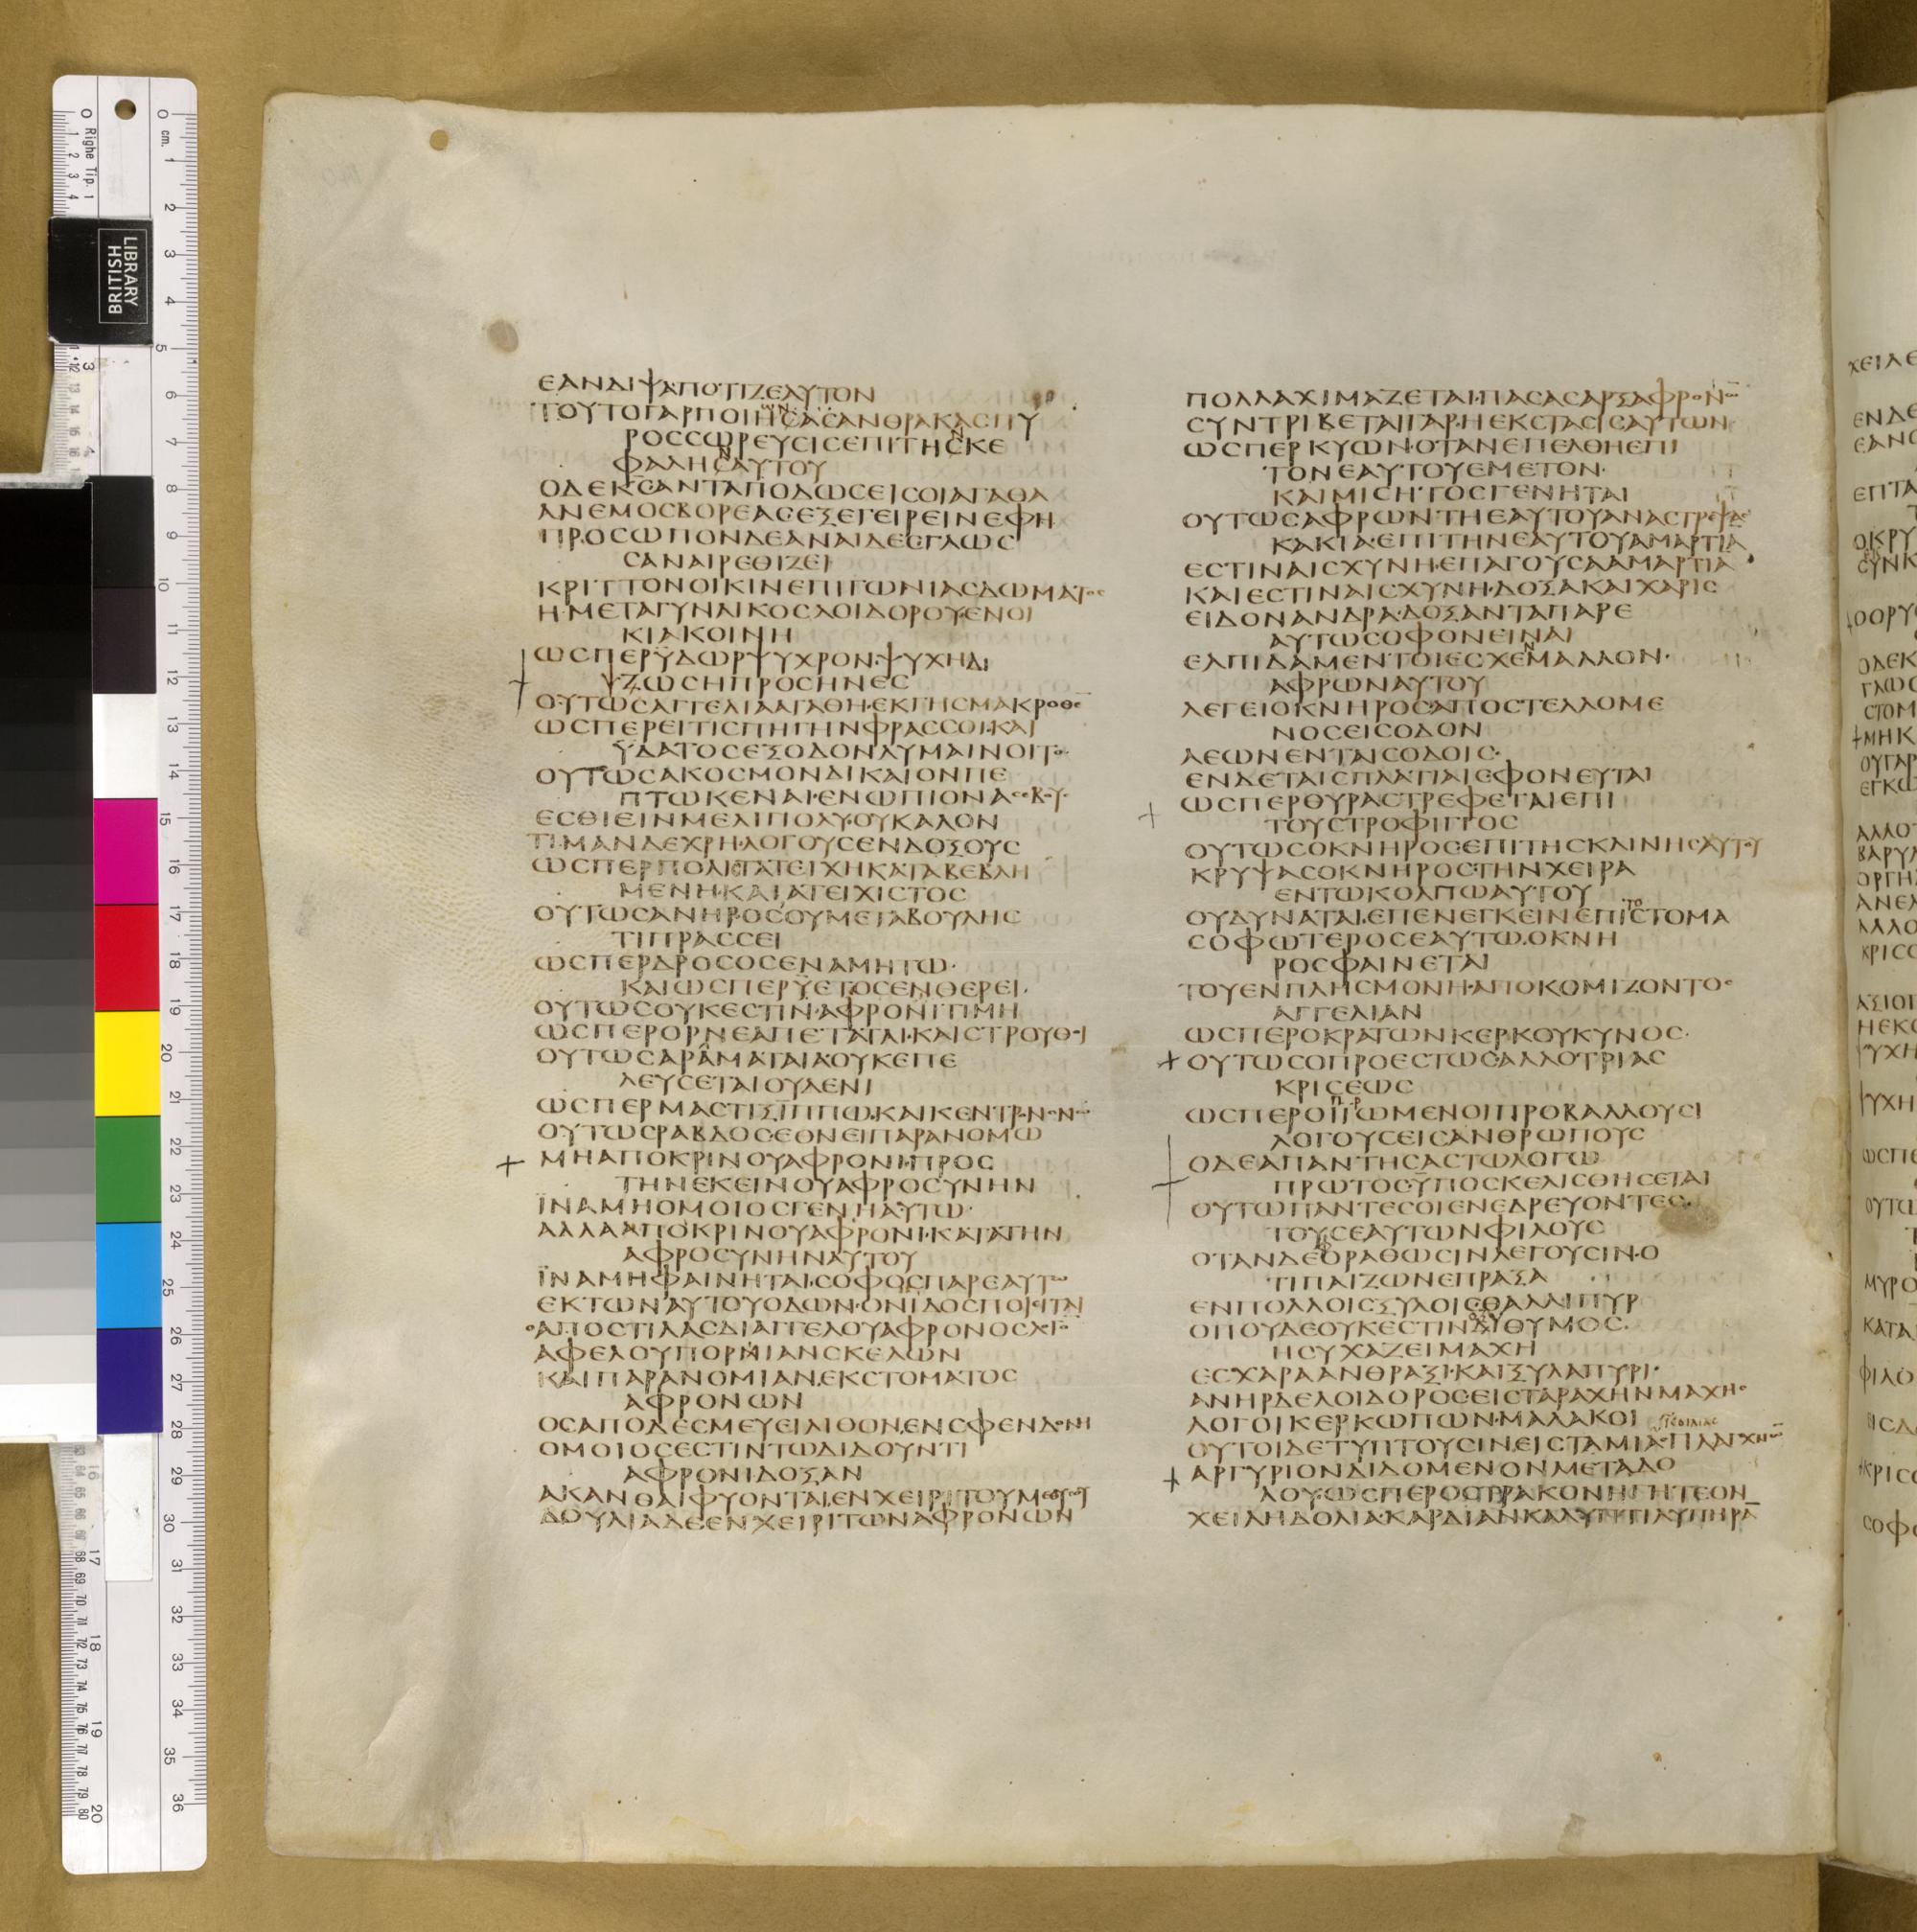 ΕΑΝΔΙΨΑΠΟΤΙΖΕΑΥΤΟΝ
ΤΟΥΤΟΓΑΡΠΟΙΗCΑCΑΝΘΡΑΚΑCΠΥ
ΡΟCCΩΡΕΥCΙCΕΠΙΤΗCΚΕ
ΦΑΛΗCΑΥΤΟΥ
ΟΔΕΚCΑΝΤΑΠΟΔΩCΕΙCΟΙΑΓΑΘΑ
ΑΝΕΜΟCΒΟΡΕΑCΕΞΕΓΕΙΡΕΙΝΕΦΗ
ΠΡΟCΩΠΟΝΔΕΑΝΑΙΔΕCΓΛΩC
CΑΝΑΙΡΕΘΙΖΕΙ
ΚΡΙΤΤΟΝΟΙΚΙΝΕΠΙΓΩΝΙΑCΔΩΜΑΤΟC
Η·ΜΕΤΑΓΥΝΑΙΚΟCΛΟΙΔΟΡΟΥΕΝΟΙ
ΚΙΑΚΟΙΝΗ
ΩCΠΕΡΫΔΩΡΨΥΧΡΟΝ·ΨΥΧΗΔΙ
ΨΖΩCΗΠΡΟCΗΝΕC
ΟΥΤΩCΑΓΓΕΛΙΑΑΓΑΘΗ·ΕΚΓΗCΜΑΚΡΟΘΕ
ΩCΠΕΡΕΙΤΙCΠΗΓΗΝΦΡΑCCΟΙ·ΚΑΙ
ΫΔΑΤΟCΕΞΟΔΟΝΛΥΜΑΙΝΟΙΤΟ
ΟΥΤΩCΑΚΟCΜΟΝΔΙΚΑΙΟΝΠΕ
ΠΤΩΚΕΝΑΙ·ΕΝΩΠΙΟΝΑCΕΒΟΥ
ΕCΘΙΕΙΝΜΕΛΙΠΟΛΥ·ΟΥΚΑΛΟΝ
ΤΙΜΑΝΔΕΧΡΗ·ΛΟΓΟΥCΕΝΔΟΞΟΥC
ΩCΠΕΡΠΟΛΙCΤΑΤΕΙΧΗΚΑΤΑΒΕΒΛΗ
ΜΕΝΗ·ΚΑΙΑΤΕΙΧΙCΤΟC
ΟΥΤΩCΑΝΗΡ·ΟCΟΥΜΕΤΑΒΟΥΛΗC
ΤΙΠΡΑCCΕΙ
ΩCΠΕΡΔΡΟCΟCΕΝΑΜΗΤΩ·
ΚΑΙΩCΠΕΡΫΕΤΟCΕΝΘΕΡΕΙ·
ΟΥΤΩCΟΥΚΕCΤΙΝ·ΑΦΡΟΝΙΤΙΜΗ
ΩCΠΕΡΟΡΝΕΑΠΕΤΑΤΑΙ·ΚΑΙCΤΡΟΥΘΟΙ
ΟΥΤΩCΑΡΑΜΑΤΑΙΑΟΥΚΕΠΕ
ΛΕΥCΕΤΑΙΟΥΔΕΝΙ
ΩCΠΕΡΜΑCΤΙΞΪΠΠΩ·ΚΑΙΚΕΝΤΡΟΝΟΝΩ
ΟΥΤΩCΡΑΒΔΟCΕΘΝΕΙΠΑΡΑΝΟΜΩ
ΜΗΑΠΟΚΡΙΝΟΥΑΦΡΟΝΙ·ΠΡΟC
ΤΗΝΕΚΕΙΝΟΥΑΦΡΟCΥΝΗΝ
ΪΝΑΜΗΟΜΟΙΟCΓΕΝΗΑΥΤΩ·
ΑΛΛΑΑΠΟΚΡΙΝΟΥΑΦΡΟΝΙ·ΚΑΤΑΤΗΝ
ΑΦΡΟCΥΝΗΝΑΥΤΟΥ
ΪΝΑΜΗΦΑΙΝΗΤΑΙ·CΟΦΟCΠΑΡΕΑΥΤΩ
ΕΚΤΩΝΑΥΤΟΥΟΔΩΝ·ΟΝΙΔΟCΠΟΙΕΙΤΑΙ
ΟΑΠΟCΤΙΛΑCΔΙΑΓΓΕΛΟΥΑΦΡΟΝΟCΛΟΓΟ
ΑΦΕΛΟΥΠΟΡΝΙΑΝCΚΕΛΩΝ
ΚΑΙΠΑΡΑΝΟΜΙΑΝ·ΕΚCΤΟΜΑΤΟC
ΑΦΡΟΝΩΝ
ΟCΑΠΟΔΕCΜΕΥΕΙΛΙΘΟΝ·ΕΝCΦΕΝΔΟΝΗ
ΟΜΟΙΟCΕCΤΙΝΤΩΔΙΔΟΥΝΤΙ
ΑΦΡΟΝΙΔΟΞΑΝ
ΑΚΑΝΘΑΙΦΥΟΝΤΑΙ·ΕΝΧΕΙΡΙΤΟΥΜΕΘΥCΟΥ
ΔΟΥΛΙΑΔΕΕΝΧΕΙΡΙΤΩΝΑΦΡΟΝΩΝ
ΠΟΛΛΑΧΙΜΑΖΕΤΑΙ·ΠΑCΑCΑΡΞΑΦΡΟΝΩ
CΥΝΤΡΙΒΕΤΑΙΓΑΡ·ΗΕΚCΤΑCΙCΑΥΤΩΝ
ΩCΠΕΡΚΥΩΝ·ΟΤΑΝΕΠΕΛΘΗΕΠΙ
ΤΟΝΕΑΥΤΟΥΕΜΕΤΟΝ·
ΚΑΙΜΙCΗΤΟCΓΕΝΗΤΑΙ
ΟΥΤΩCΑΦΡΩΝ·ΤΗΕΑΥΤΟΥΑΝΑCΤΡΕΨΑC
ΚΑΚΙΑ·ΕΠΙΤΗΝΕΑΥΤΟΥΑΜΑΡΤΙΑ
ΕCΤΙΝΑΙCΧΥΝΗ·ΕΠΑΓΟΥCΑΑΜΑΡΤΙΑ
ΚΑΙΕCΤΙΝΑΙCΧΥΝΗ·ΔΟΞΑΚΑΙΧΑΡΙC
ΕΙΔΟΝΑΝΔΡΑ·ΔΟΞΑΝΤΑΠΑΡΕ
ΑΥΤΩCΟΦΟΝΕΙΝΑΙ
ΕΛΠΙΔΑΜΕΝΤΟΙΕCΧΕΜΑΛΛΟΝ·
ΑΦΡΩΝΑΥΤΟΥ
ΛΕΓΕΙΟΚΝΗΡΟC·ΑΠΟCΤΕΛΛΟΜΕ
ΝΟCΕΙCΟΔΟΝ
ΛΕΩΝΕΝΤΑΙCΟΔΟΙC·
ΕΝΔΕΤΑΙCΠΛΑΤΙΑΙCΦΟΝΕΥΤΑΙ
ΩCΠΕΡΘΥΡΑCΤΡΕΦΕΤΑΙΕΠΙ
ΤΟΥCΤΡΟΦΙΓΓΟC
ΟΥΤΩCΟΚΝΗΡΟCΕΠΙΤΗCΚΛΙΝΗCΑΥΤΟΥ
ΚΡΥΨΑCΟΚΝΗΡΟCΤΗΝΧΕΙΡΑ
ΕΝΤΩΚΟΛΠΩΑΥΤΟΥ
ΟΥΔΥΝΑΤΑΙ·ΕΠΕΝΕΓΚΕΙΝΕΠΙCΤΟΜΑ
CΟΦΩΤΕΡΟCΕΑΥΤΩ·ΟΚΝΗ
ΡΟCΦΑΙΝΕΤΑΙ
ΤΟΥΕΝΠΛΗCΜΟΝΗ·ΑΠΟΚΟΜΙΖΟΝΤΟC
ΑΓΓΕΛΙΑΝ
ΩCΠΕΡΟΚΡΑΤΩΝΚΕΡΚΟΥΚΥΝΟC·
ΟΥΤΩCΟΠΡΟΕCΤΩCΑΛΛΟΤΡΙΑC
ΚΡΙCΕΩC
ΩCΠΕΡΟΙΪΩΜΕΝΟΙΠΡΟΒΑΛΛΟΥCΙ
ΛΟΓΟΥCΕΙCΑΝΘΡΩΠΟΥC
ΟΔΕΑΠΑΝΤΗCΑCΤΩΛΟΓΩ
ΠΡΩΤΟCΫΠΟCΚΕΛΙCΘΗCΕΤΑΙ
ΟΥΤΩΠΑΝΤΕCΟΙΕΝΕΔΡΕΥΟΝΤΕC
ΤΟΥCΕΑΥΤΩΝΦΙΛΟΥC
ΟΤΑΝΔΕΟΡΑΘΩCΙΝΛΕΓΟΥCΙΝ·Ο
ΤΙΠΑΙΖΩΝΕΠΡΑΞΑ
ΕΝΠΟΛΛΟΙCΞΥΛΟΙCΘΑΛΛΙΠΥΡ
ΟΠΟΥΔΕΟΥΚΕCΤΙΝΔΙΘΥΜΟC·
ΗCΥΧΑΖΕΙΜΑΧΗ
ΕCΧΑΡΑΑΝΘΡΑΞΙ·ΚΑΙΞΥΛΑΠΥΡΙ·
ΑΝΗΡΔΕΛΟΙΔΟΡΟCΕΙCΤΑΡΑΧΗΝΜΑΧΗC
ΛΟΓΟΙΚΕΡΚΩΠΩΝ·ΜΑΛΑΚΟΙ
ΟΥΤΟΙΔΕΤΥΠΤΟΥCΙΝ·ΕΙCΤΑΜΙΑCΠΛΑΓΧΝΩ
ΑΡΓΥΡΙΟΝΔΙΔΟΜΕΝΟΝΜΕΤΑΔΟ
ΛΟΥ·ΩCΠΕΡΟCΤΡΑΚΟΝΗΓΗΤΕΟΝ
ΧΕΙΛΗΔΟΛΙΑ·ΚΑΡΔΙΑΝΚΑΛΥΠΤΙΛΥΠΗΡΑ
LIBRARY
BRITISH